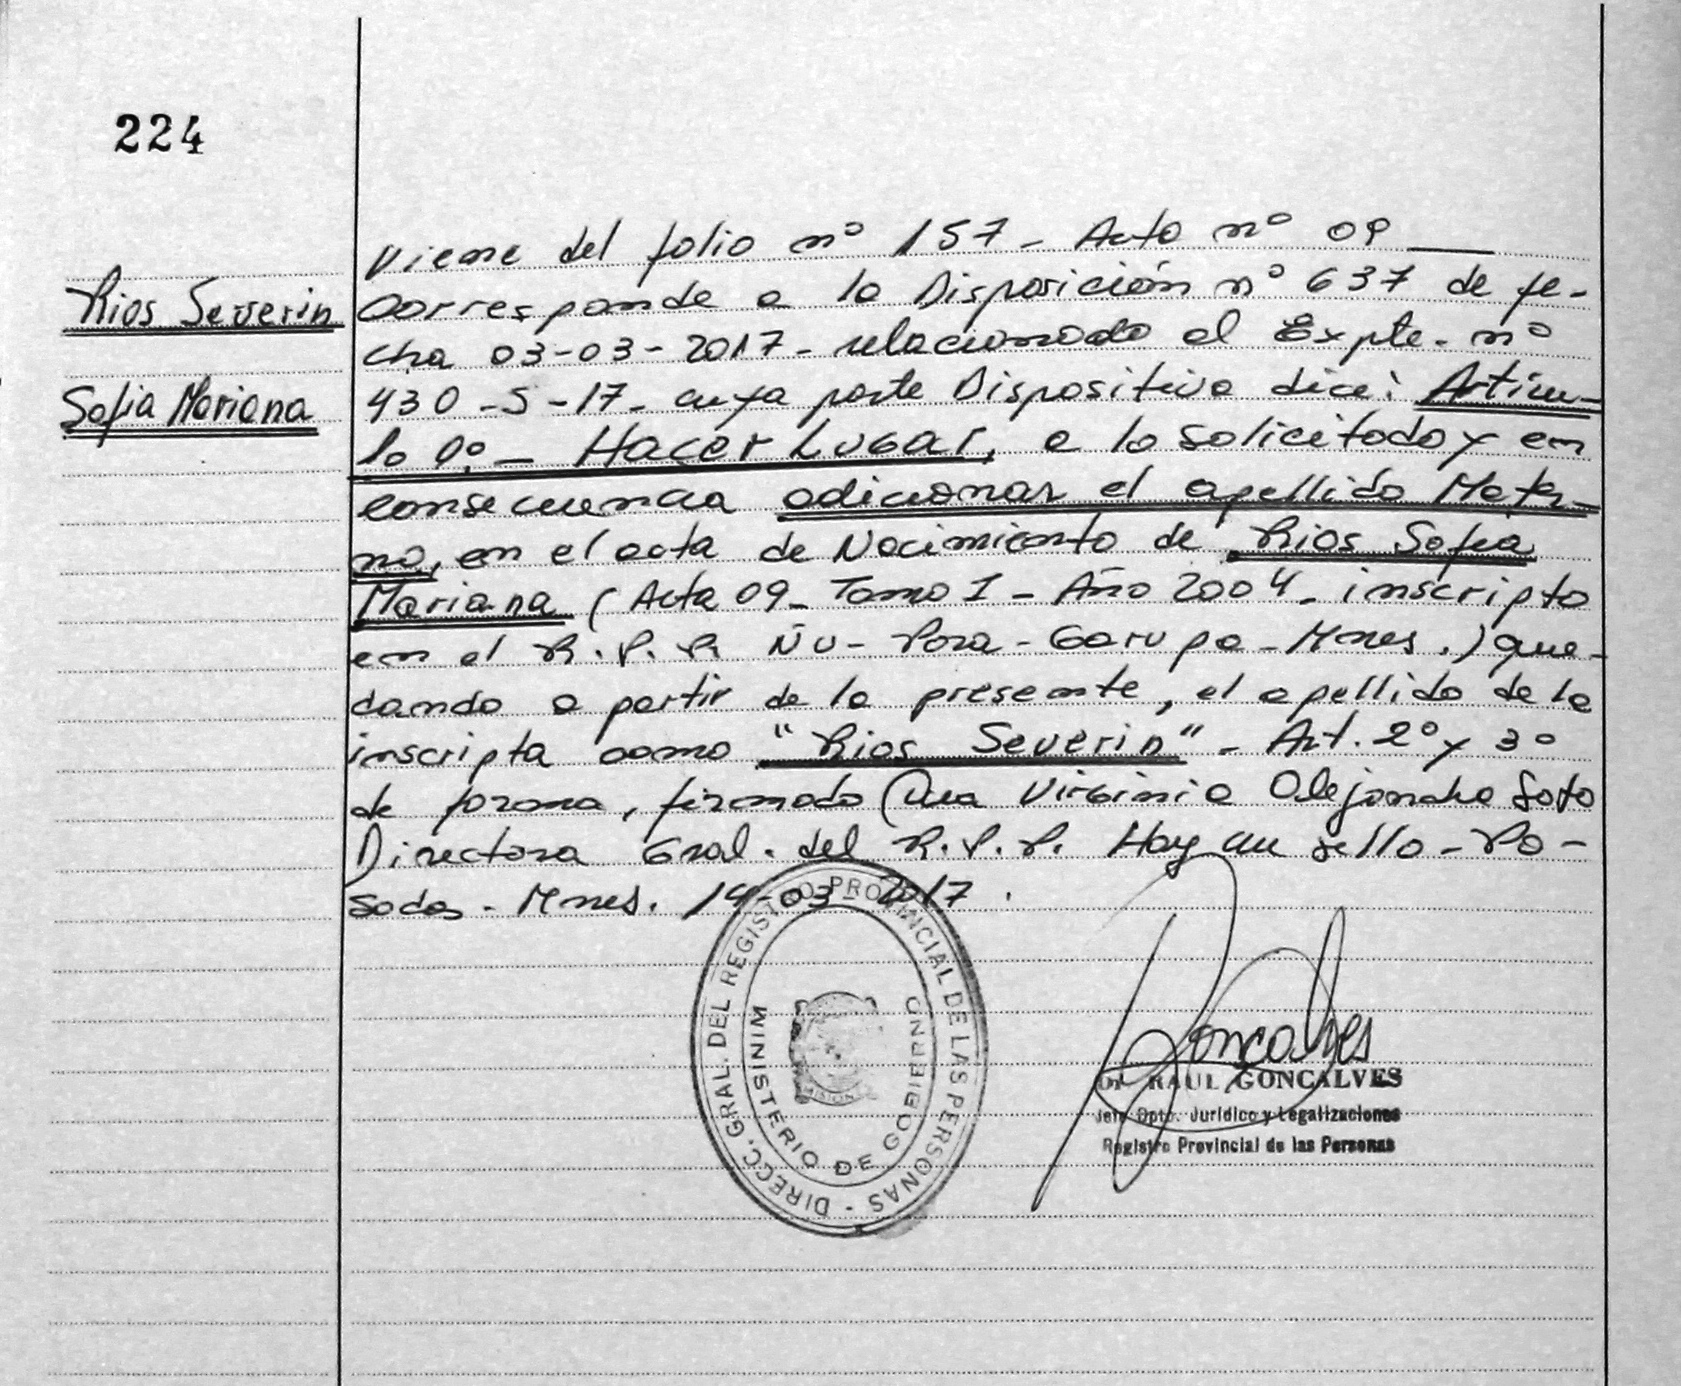 224
Rios Severin
Sofia Mariana
Viene del folio nº 157 - Acta nº 09
Corresponde a la Disposición nº 637 de fe-
cha 03-03-2017 - relacionado al Expte. nº
430 - S - 17 - cuya parte Dispositiva dice: Artícu-
lo 1º - Hacer Lugar, a lo solicitado y en
consecuencia adicionar el apellido Mater-
no, en el acta de Nacimiento de Rios Sofia
Mariana (Acta 09 - Tomo I - Año 2004 - inscripta
en el R.P.P. Ñu - Pora - Garupa - Mnes.) que-
dando a partir de la presente, el apellido de la
inscripta como "Rios Severin" - Art. 2º y 3º
de forma, firmado Dra Virginia Alejandra Soto
Directora Gral. del R.P.P. Hay un sello - Po-
sadas - Mnes. 14-03-2017.
DIRECC. GRAL. DEL REGISTRO PROVINCIAL DE LAS PERSONAS -
MINISTERIO DE GOBIERNO
MISIONES
Gonçalves
Dr RAUL GONCALVES
Jefe Dpto. Jurídico y Legalizaciones
Registro Provincial de las Personas